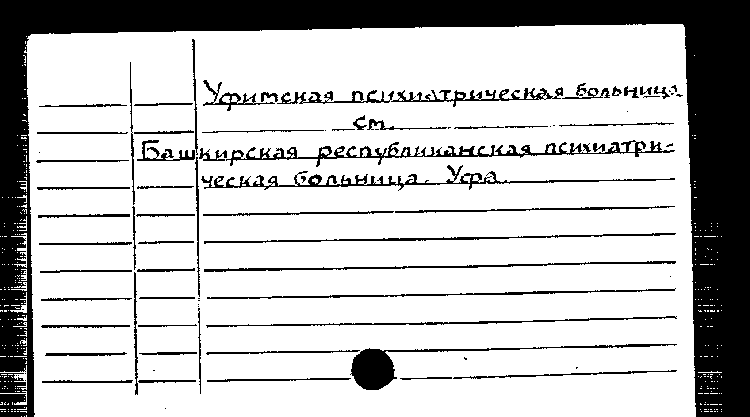 Уфимская психиатрическая больница
см.
Башкирская республиканская психиатри-
ческая больница. Уфа.